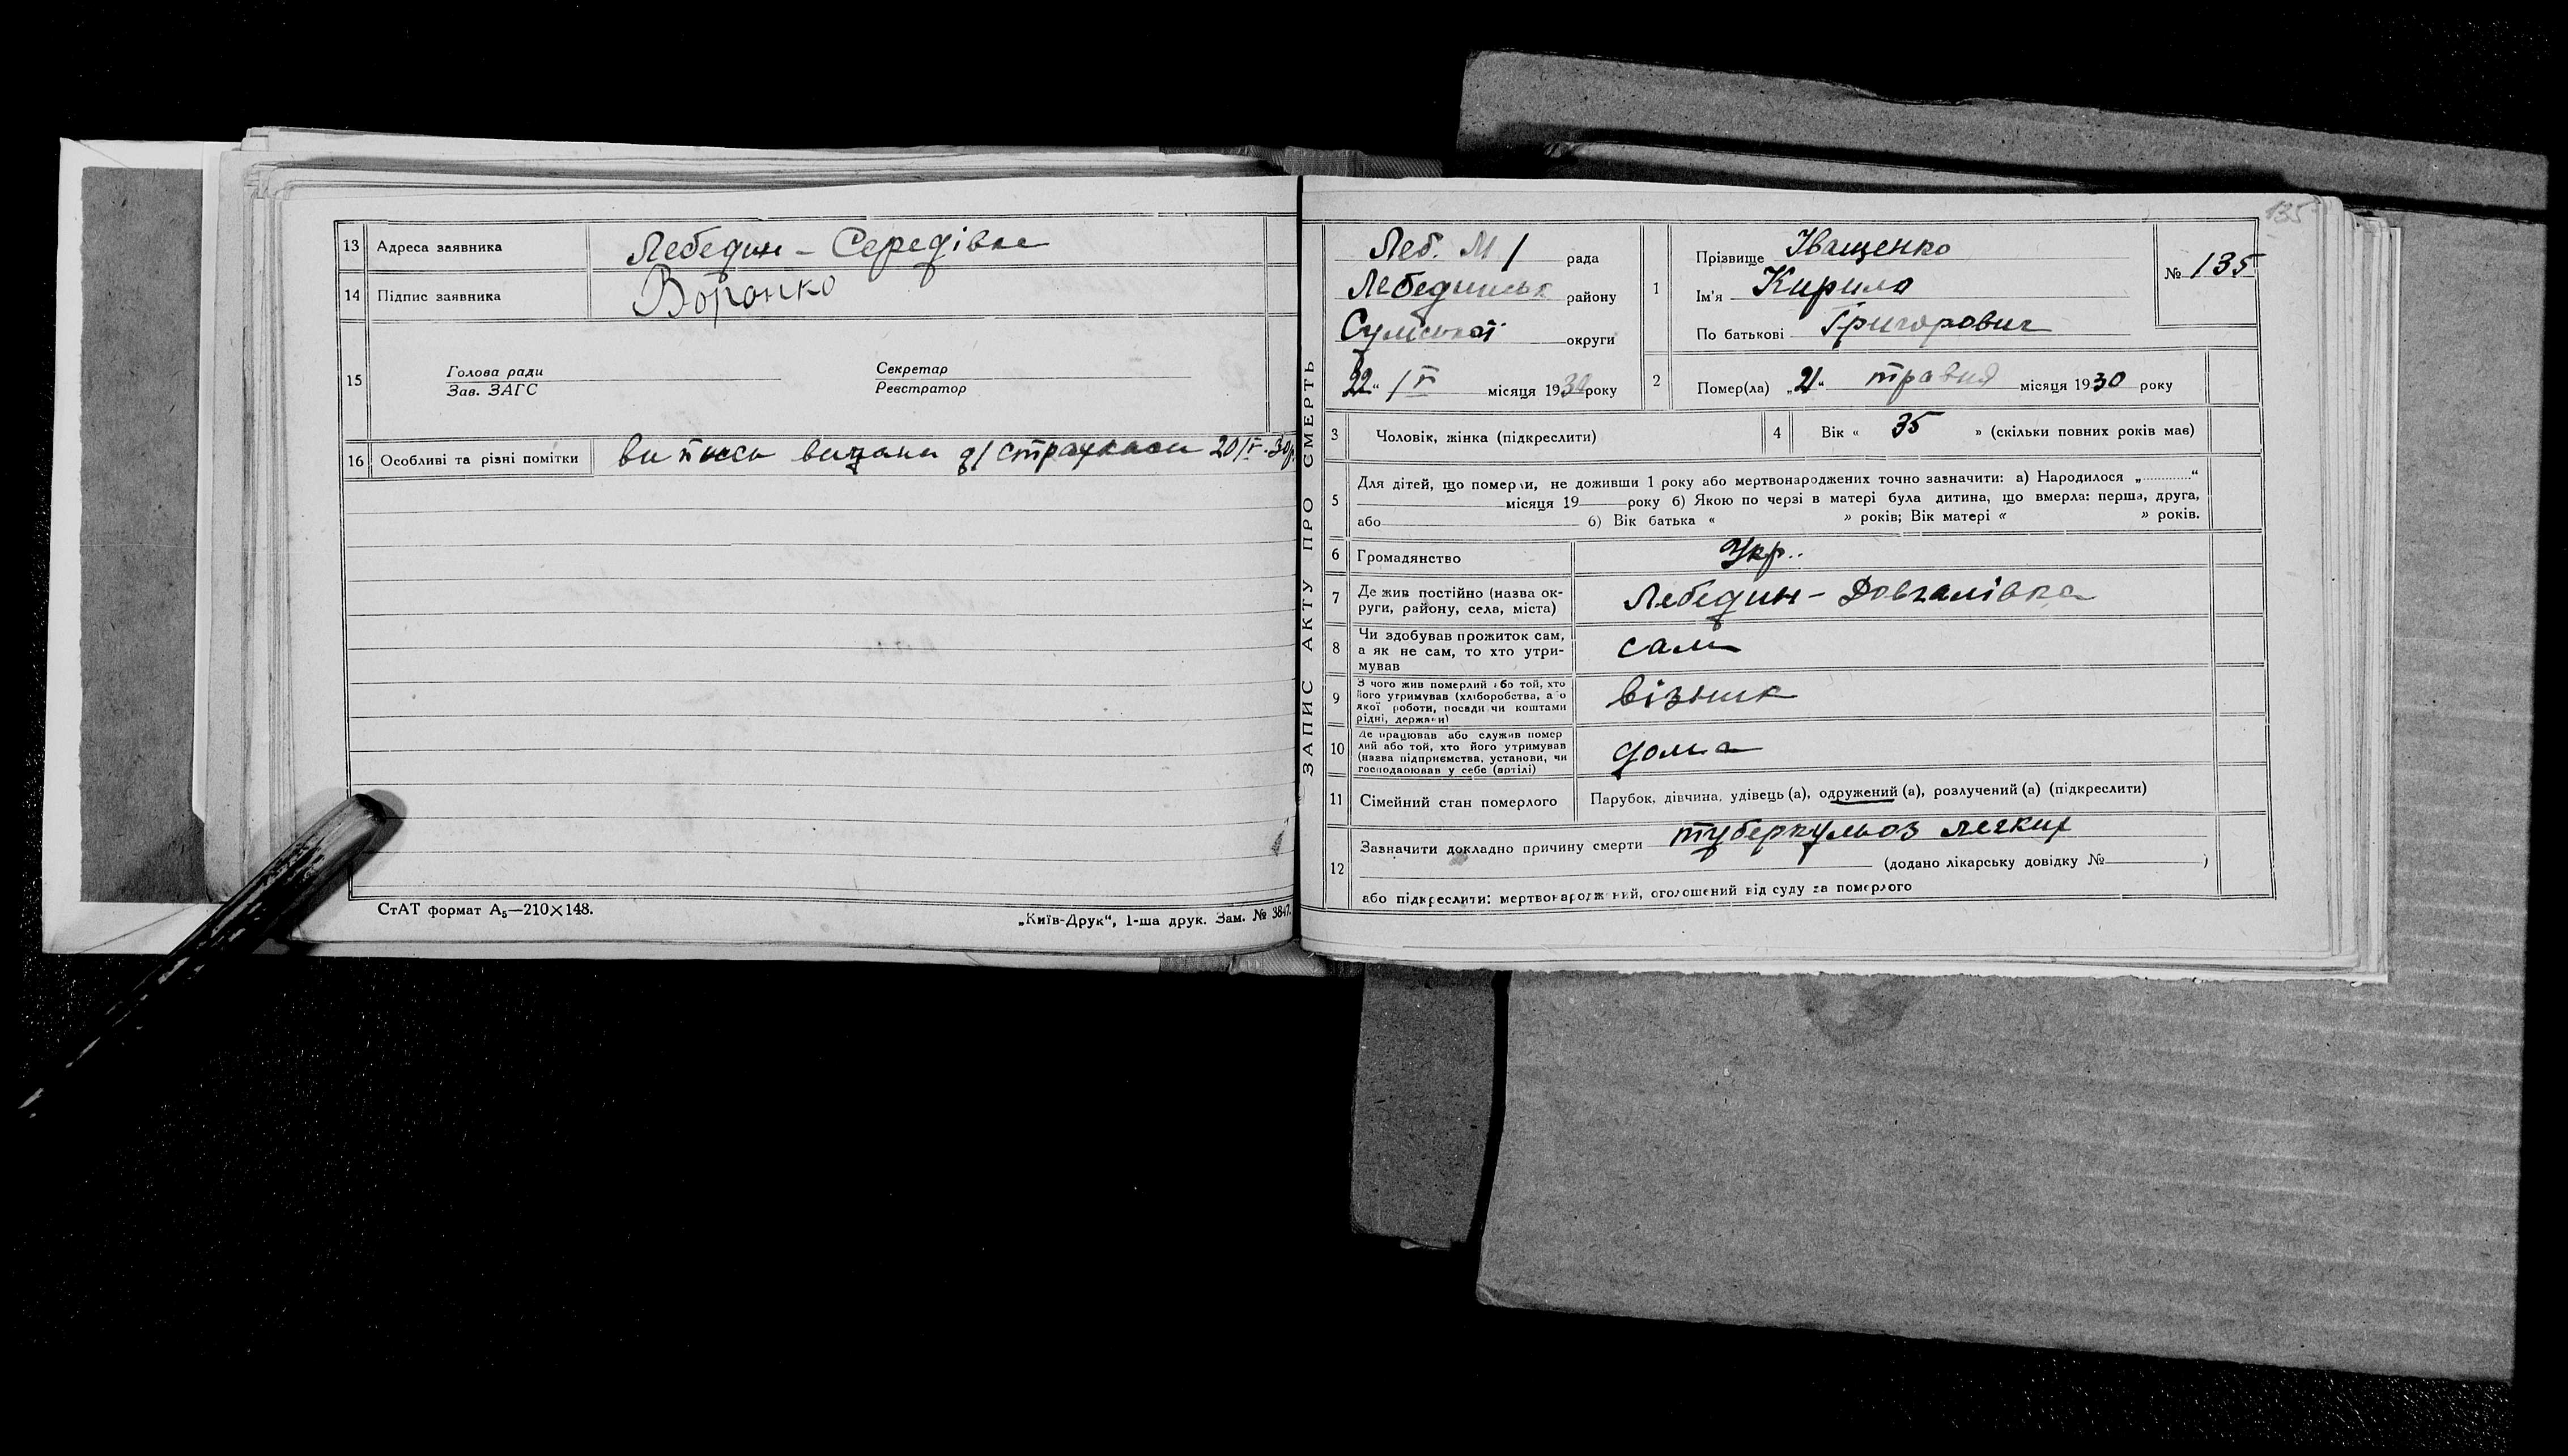 13 Адреса заявника Лебедин - Середівка
14 Підпис заявника Воронко
15 Голова ради Секретар
Зав. ЗАГС Реєстратор
16 Особливі та різні помітки виписи видана д/ страхкаси 20/V-30р.
СтАТ формат А₅—210×148.
„Київ-Друк“, 1-ша друк. Зам. № 3847.
ЗАПИС АКТУ ПРО СМЕРТЬ
135
Леб. М/ рада
Лебединськ району
Сумської округи
22“ /V місяця 1930 року
1 Прізвище Іващенко
Ім'я Кирило
По батькові Григорович
№ 135
2 Помер(ла) „21“ травня місяця 1930 року
3 Чоловік, жінка (підкреслити)
4 Вік « 35 » (скільки повних років мав)
5 Для дітей, що померли, не доживши 1 року або мертвонароджених точно зазначити: а) Народилося „ “
місяця 19 року б) Якою по черзі в матері була дитина, що вмерла: перша, друга,
або б) Вік батька « » років; Вік матері « » років.
6 Громадянство Укр.
7 Де жив постійно (назва ок-
руги, району, села, міста) Лебедин - Довгалівка
8 Чи здобував прожиток сам,
а як не сам, то хто утри-
мував сам
9 З чого жив померлий або той, хто
його утримував (хліборобства, або
якої роботи, посади чи коштами
рідні, держави) візник
10 Де працював або служив помер
лий або той, хто його утримував
(назва підприємства, установи, чи
господарював у себе (артілі) дома
11 Сімейний стан померлого Парубок, дівчина, удівець (а), одружений (а), розлучений (а) (підкреслити)
12 Зазначити докладно причину смерти туберкульоз легких
(додано лікарську довідку № )
або підкреслити: мертвонароджений, оголошений від суду за померлого